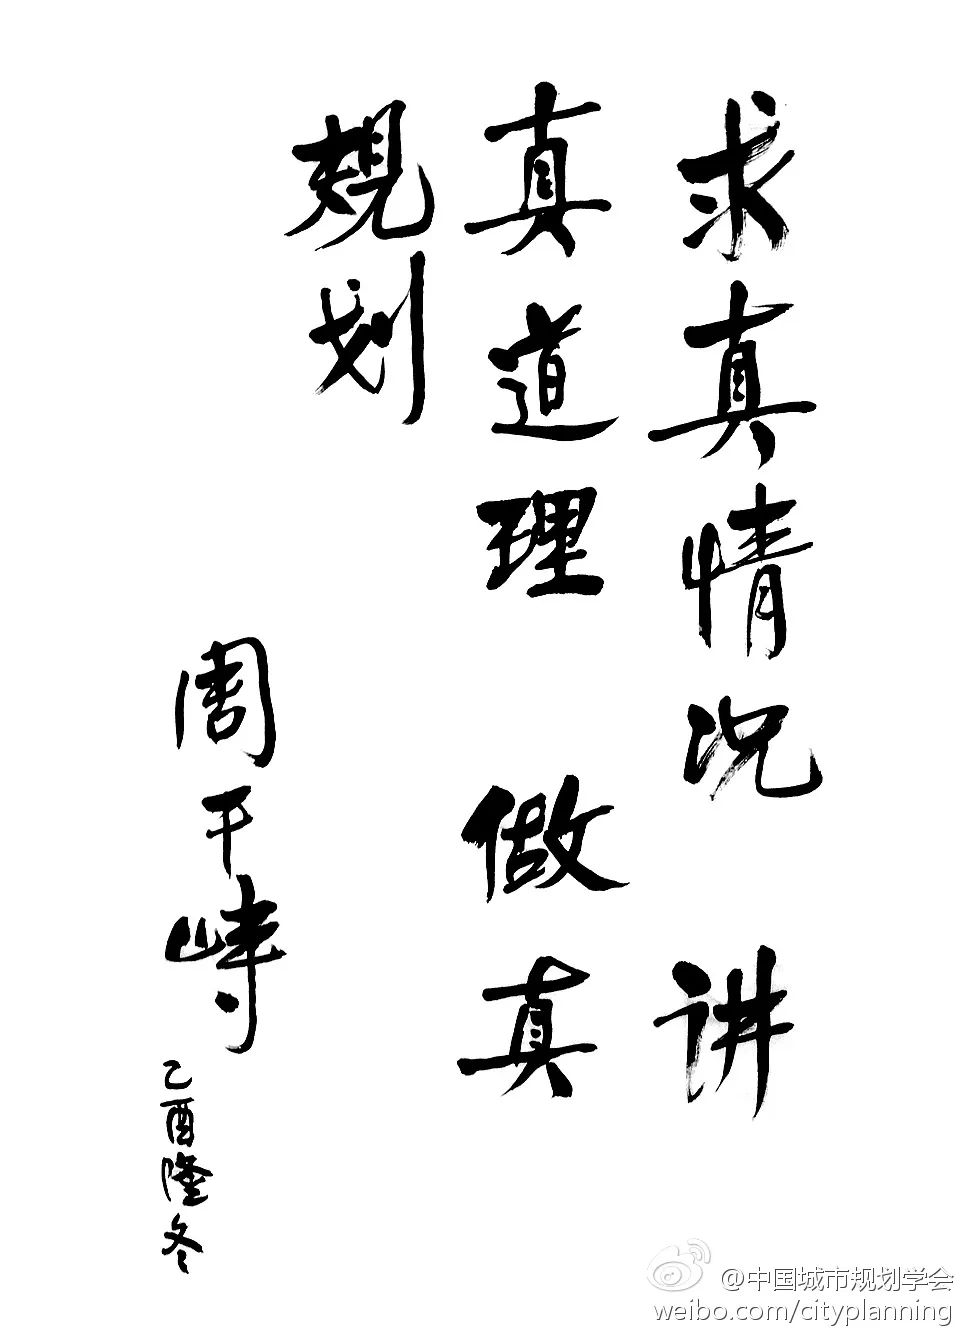 求真情况 讲
真道理 做真
规划
周干峙
乙酉隆冬
@中国城市规划学会
weibo.com/cityplanning